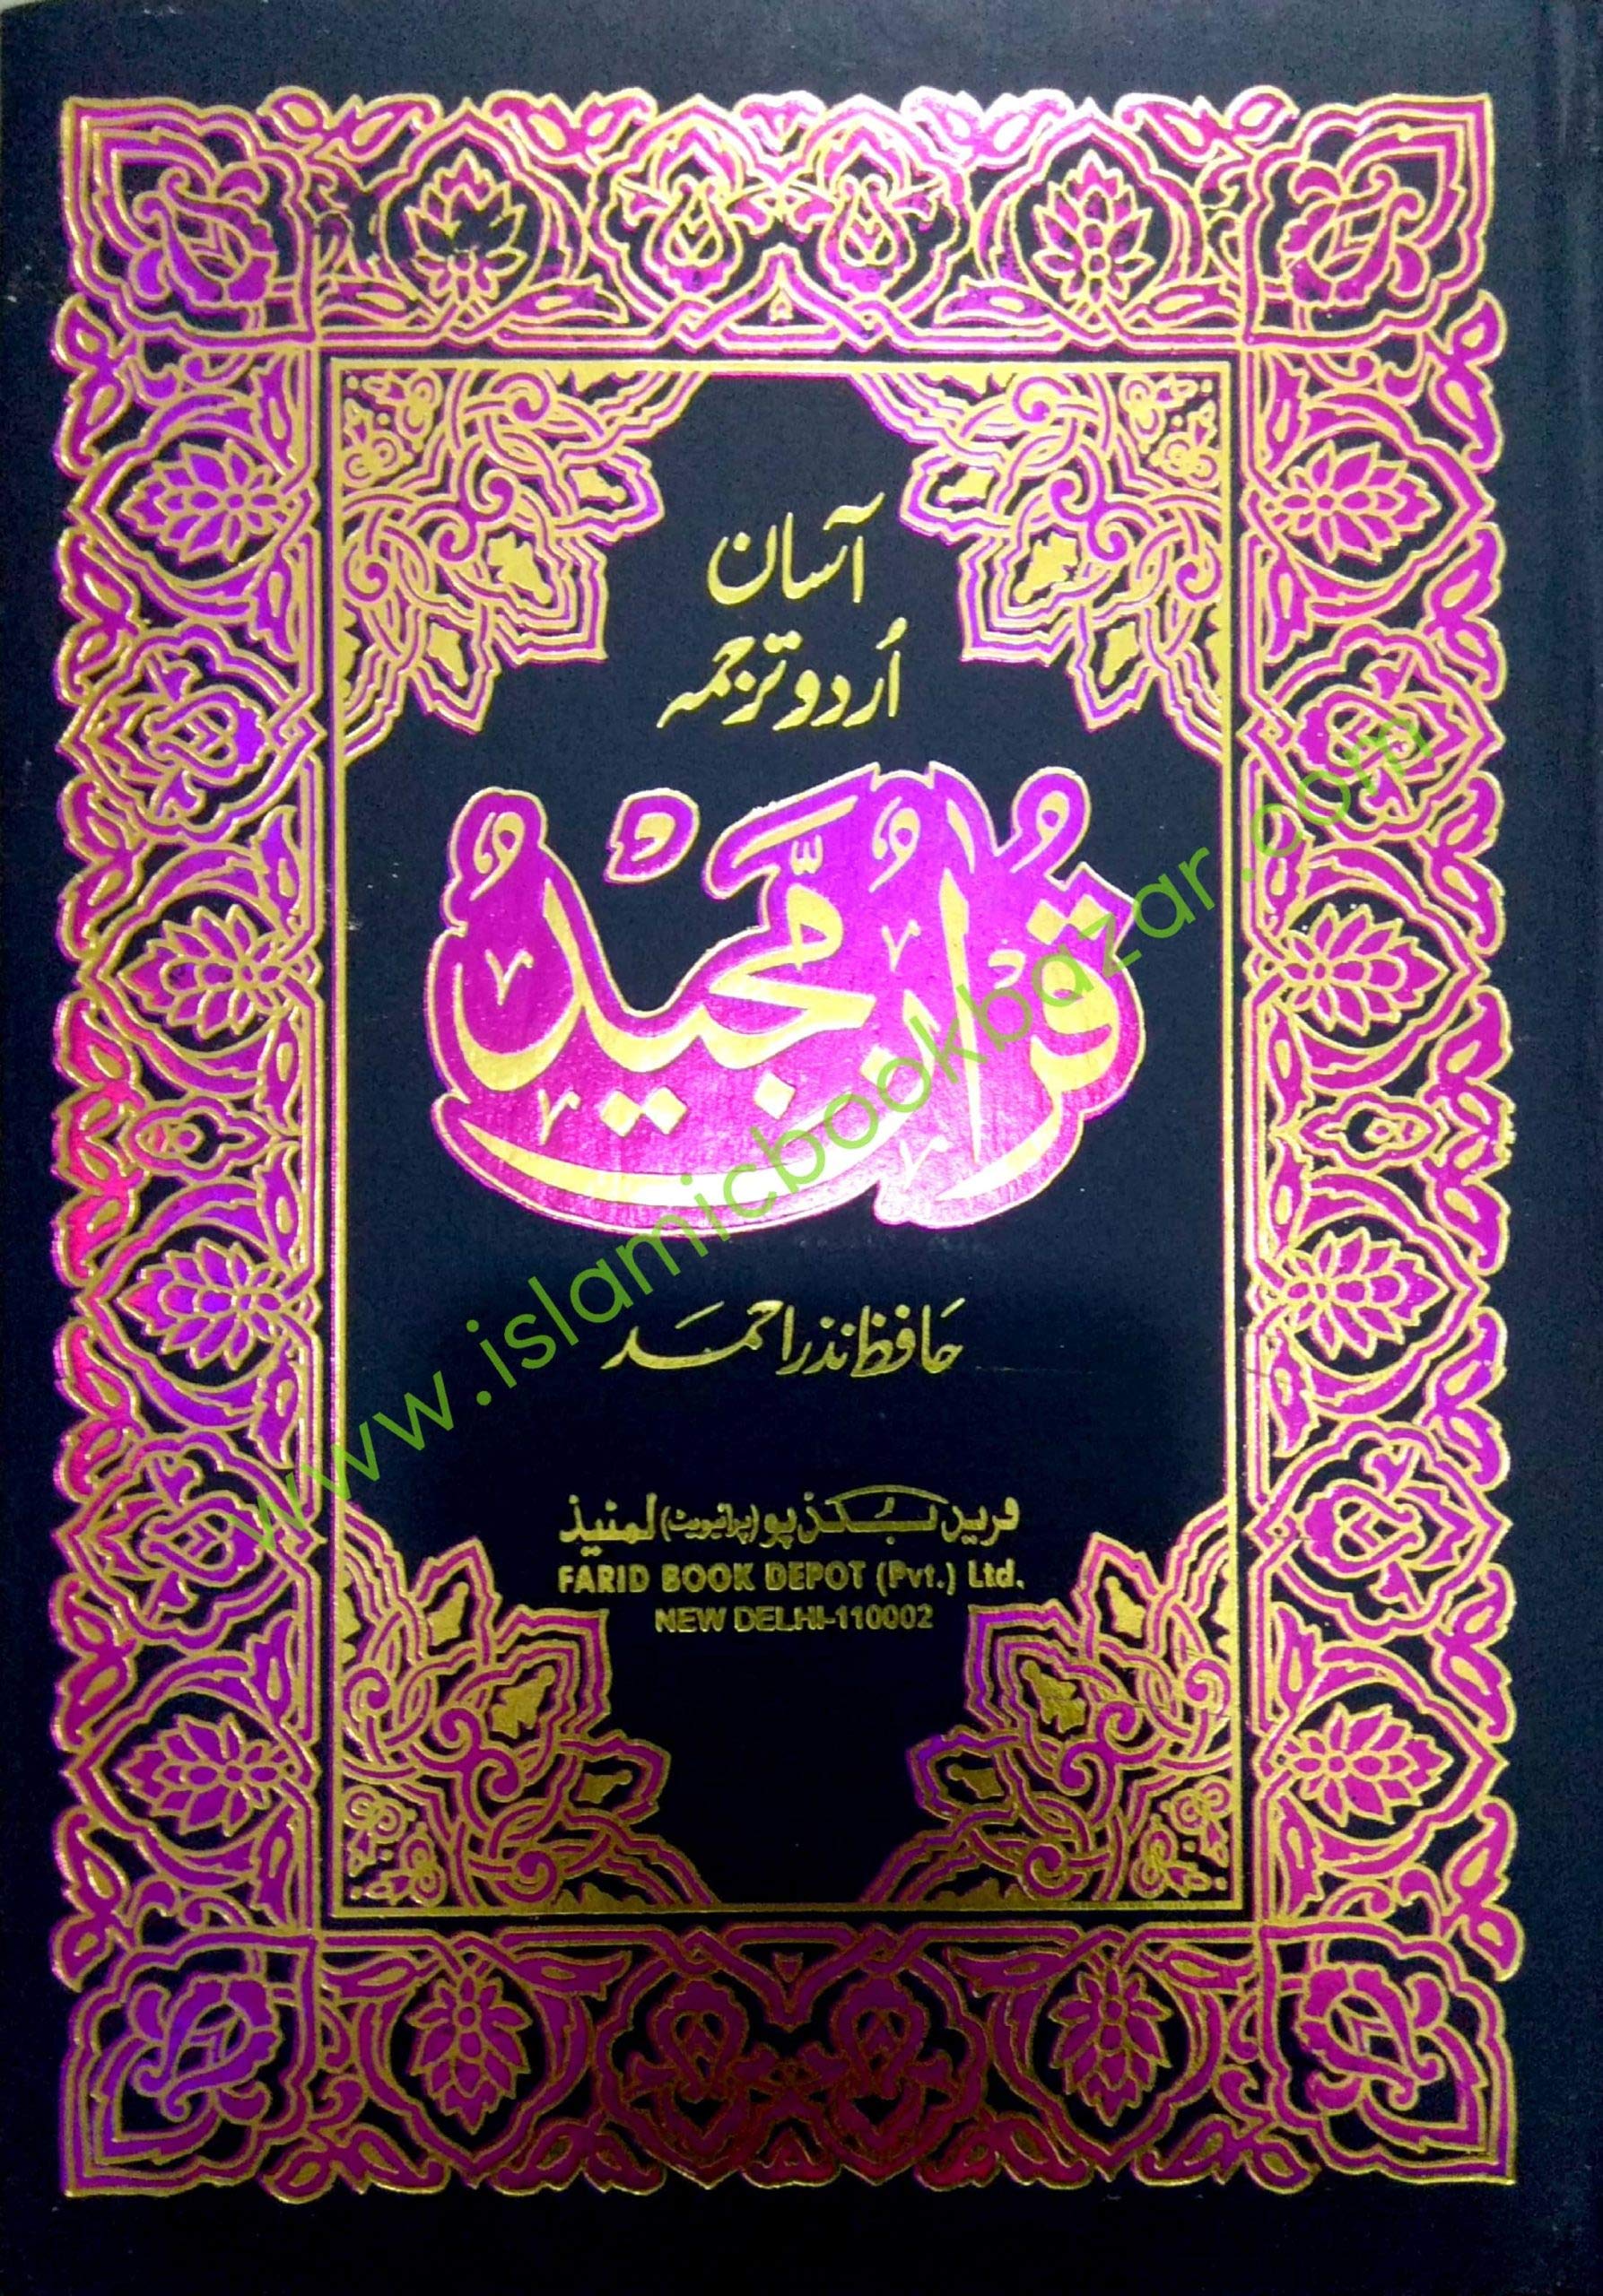 آسان
اُردو ترجمہ
قُرْاٰنٌ مَّجِيْدٌ
حافظ نذر احمد
فرید بکڈپو (پرائیویٹ) لمٹیڈ
FARID BOOK DEPOT (Pvt.) Ltd.
NEW DELHI-110002
www.islamicbookbazar.com